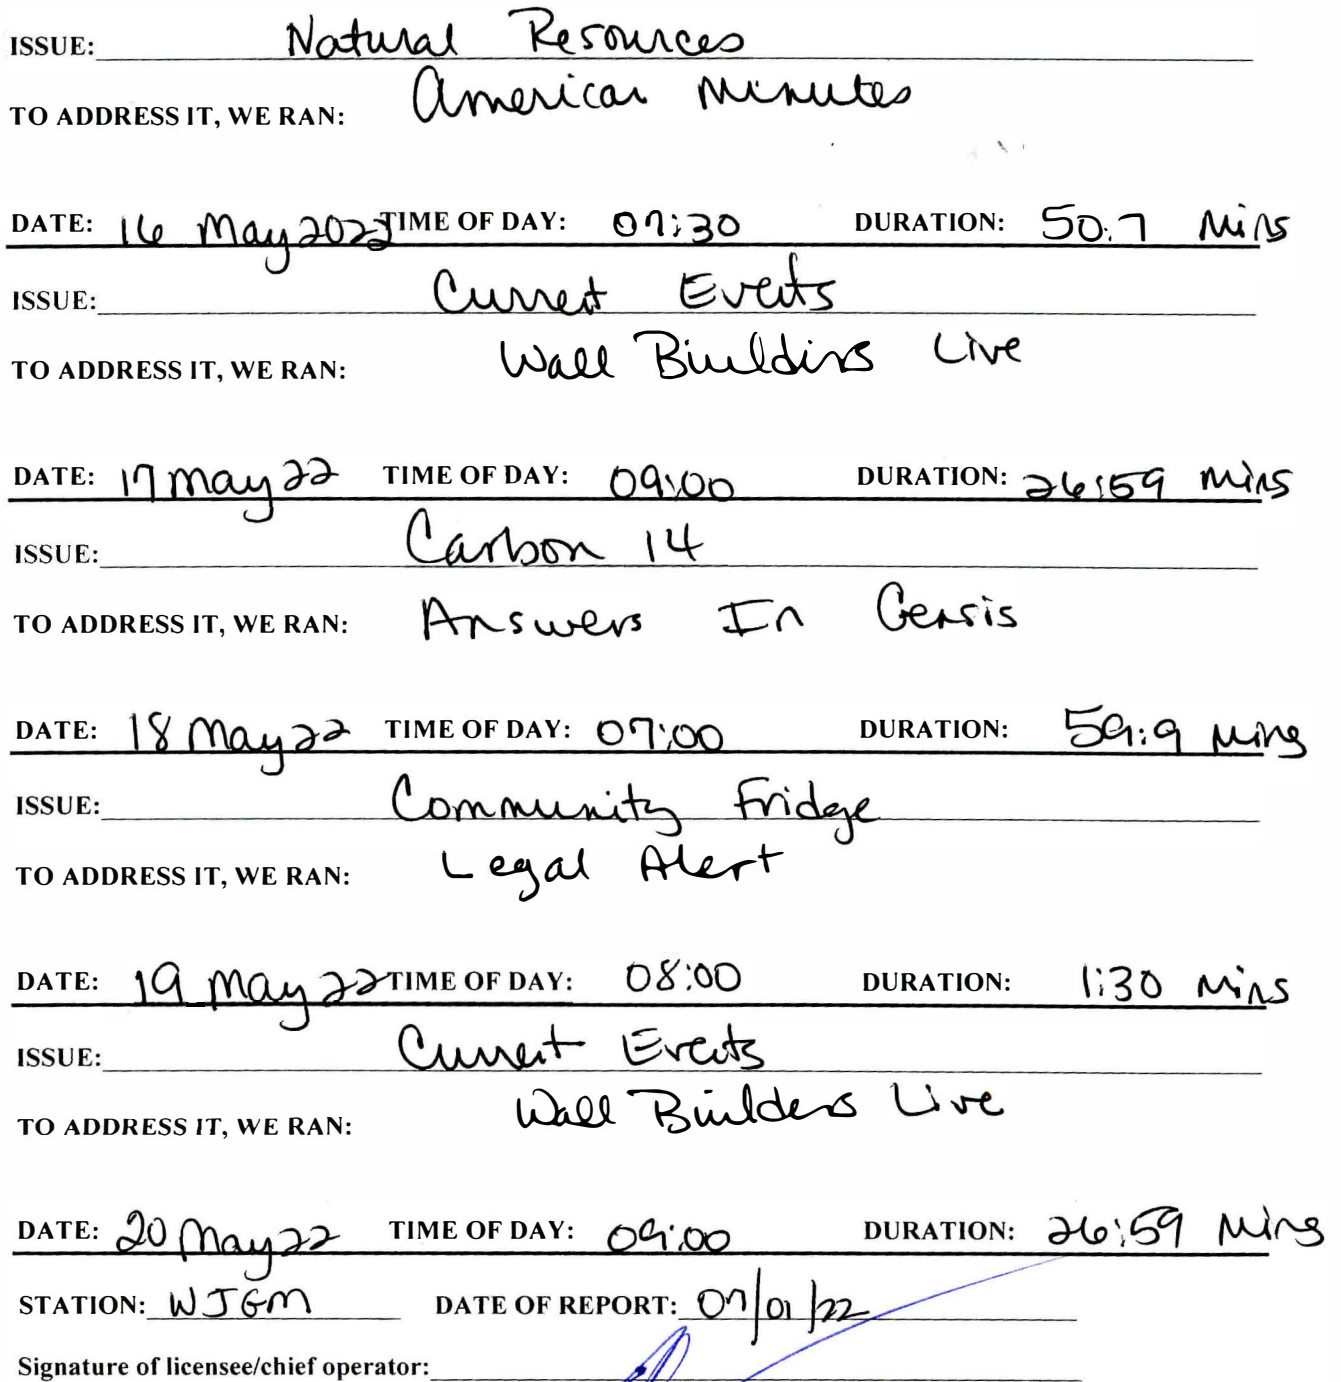 ISSUE: Natural Resources
TO ADDRESS IT, WE RAN: American Minutes
DATE: 16 May 2022 TIME OF DAY: 07:30 DURATION: 50.7 Mins
ISSUE: Current Events
TO ADDRESS IT, WE RAN: Wall Builders Live
DATE: 17 May 22 TIME OF DAY: 09:00 DURATION: 26:59 Mins
ISSUE: Carbon 14
TO ADDRESS IT, WE RAN: Answers In Gensis
DATE: 18 May 22 TIME OF DAY: 07:00 DURATION: 59:9 Mins
ISSUE: Community Fridge
TO ADDRESS IT, WE RAN: Legal Alert
DATE: 19 May 22 TIME OF DAY: 08:00 DURATION: 1:30 Mins
ISSUE: Current Events
TO ADDRESS IT, WE RAN: Wall Builders Live
DATE: 20 May 22 TIME OF DAY: 09:00 DURATION: 26:59 Mins
STATION: WJGM DATE OF REPORT: 07/01/22
Signature of licensee/chief operator: